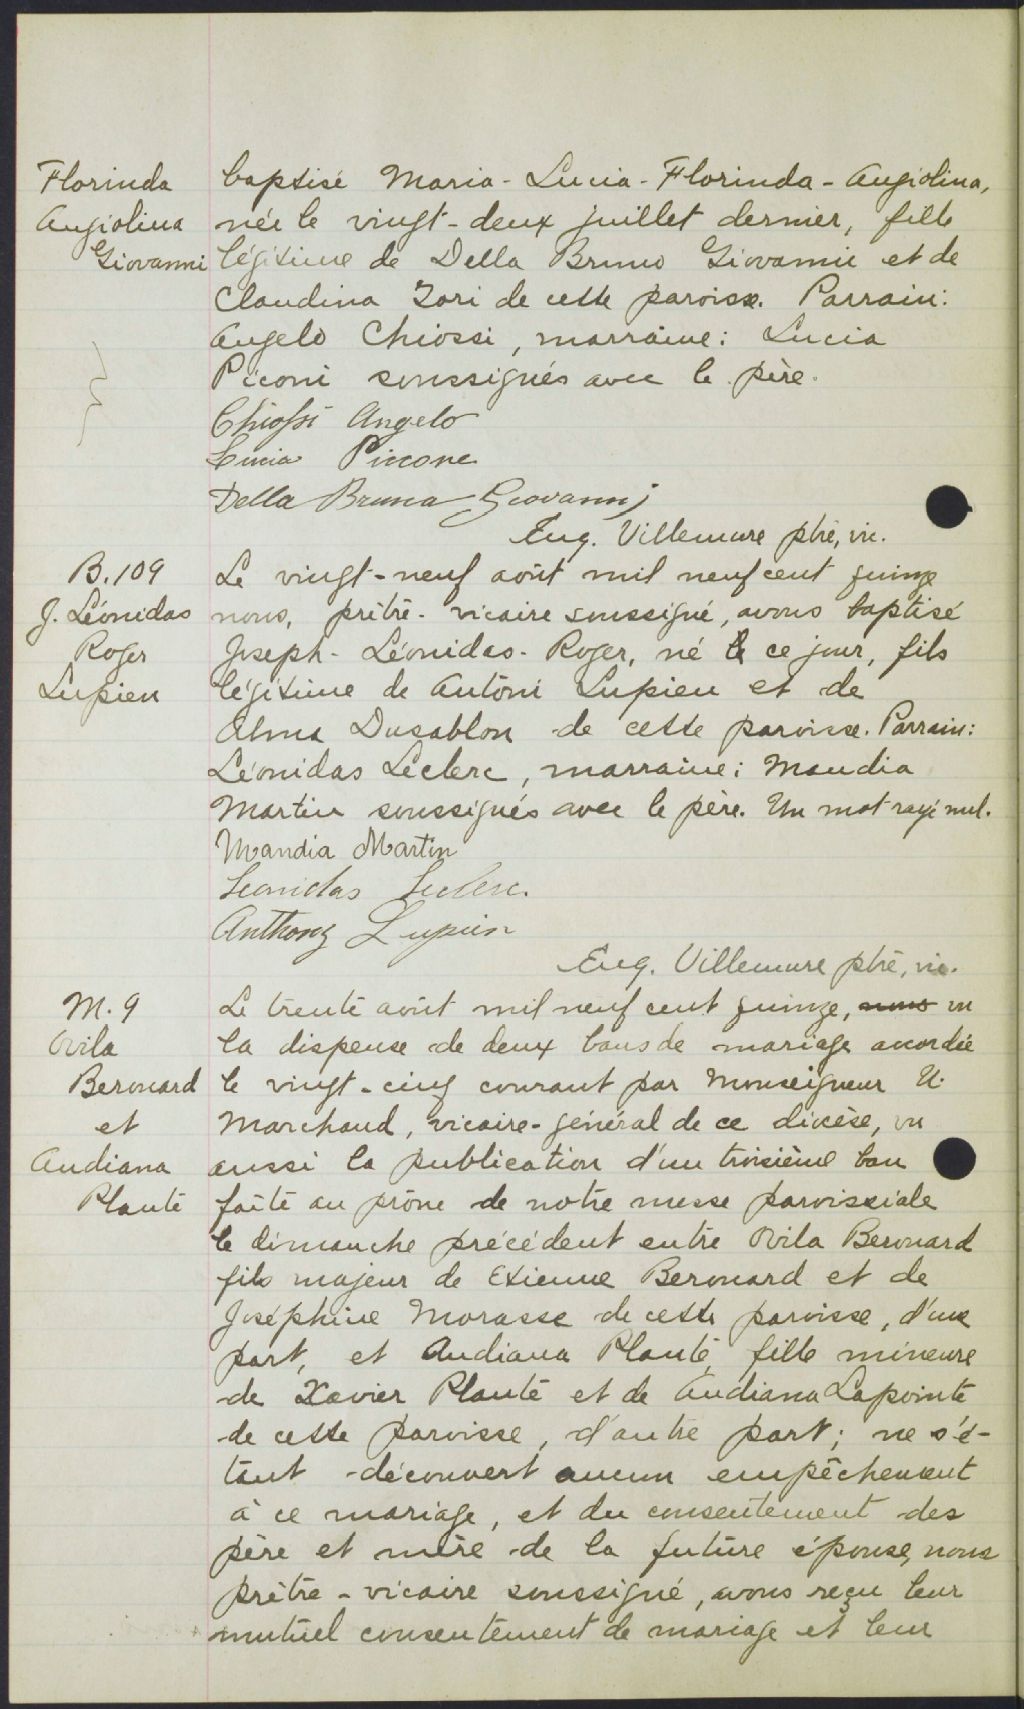 Florinda
Angiolina
Giovanni
baptisé Maria-Lucia-Florinda-Angiolina,
née le vingt-deux juillet dernier, fille
légitime de Della Bruno Giovanni et de
Claudina Zori de cette paroisse. Parrain:
Angelo Chiossi, marraine: Lucia
Piconi soussignés avec le père.
Chiossi Angelo
Lucia Piccone
Della Bruna Giovanni
Eug. Villemure ptre, vic.
B.109
J. Léonidas
Roger
Lupien
Le vingt-neuf août mil neuf cent quinze
nous, prêtre-vicaire soussigné, avons baptisé
Joseph-Léonidas-Roger, né le ce jour, fils
légitime de Antoni Lupien et de
Alma Dusablon de cette paroisse. Parrain:
Léonidas Leclerc, marraine: Mandia
Martin soussignés avec le père. Un mot rayé nul.
Mandia Martin
Leonidas Leclerc.
Anthony Lupien
Eug. Villemure ptre, vic.
M. 9
Ovila
Berouard
et
Audiana
Planté
Le trente août mil neuf cent quinze, nous vu
la dispense de deux bans de mariage accordée
le vingt-cinq courant par Monseigneur U.
Marchand, vicaire-général de ce diocèse, vu
aussi la publication d'un troisième ban
faite au prône de notre messe paroissiale
le dimanche précédent entre Ovila Berouard
fils majeur de Etienne Berouard et de
Joséphine Morasse de cette paroisse, d'une
part, et Audiana Planté, fille mineure
de Xavier Planté et de Audiana Lapointe
de cette paroisse, d'autre part; ne s'é-
tant découvert aucun empêchement
à ce mariage, et du consentement des
père et mère de la future épouse, nous
prêtre-vicaire soussigné, avons reçu leur
mutuel consentement de mariage et leur